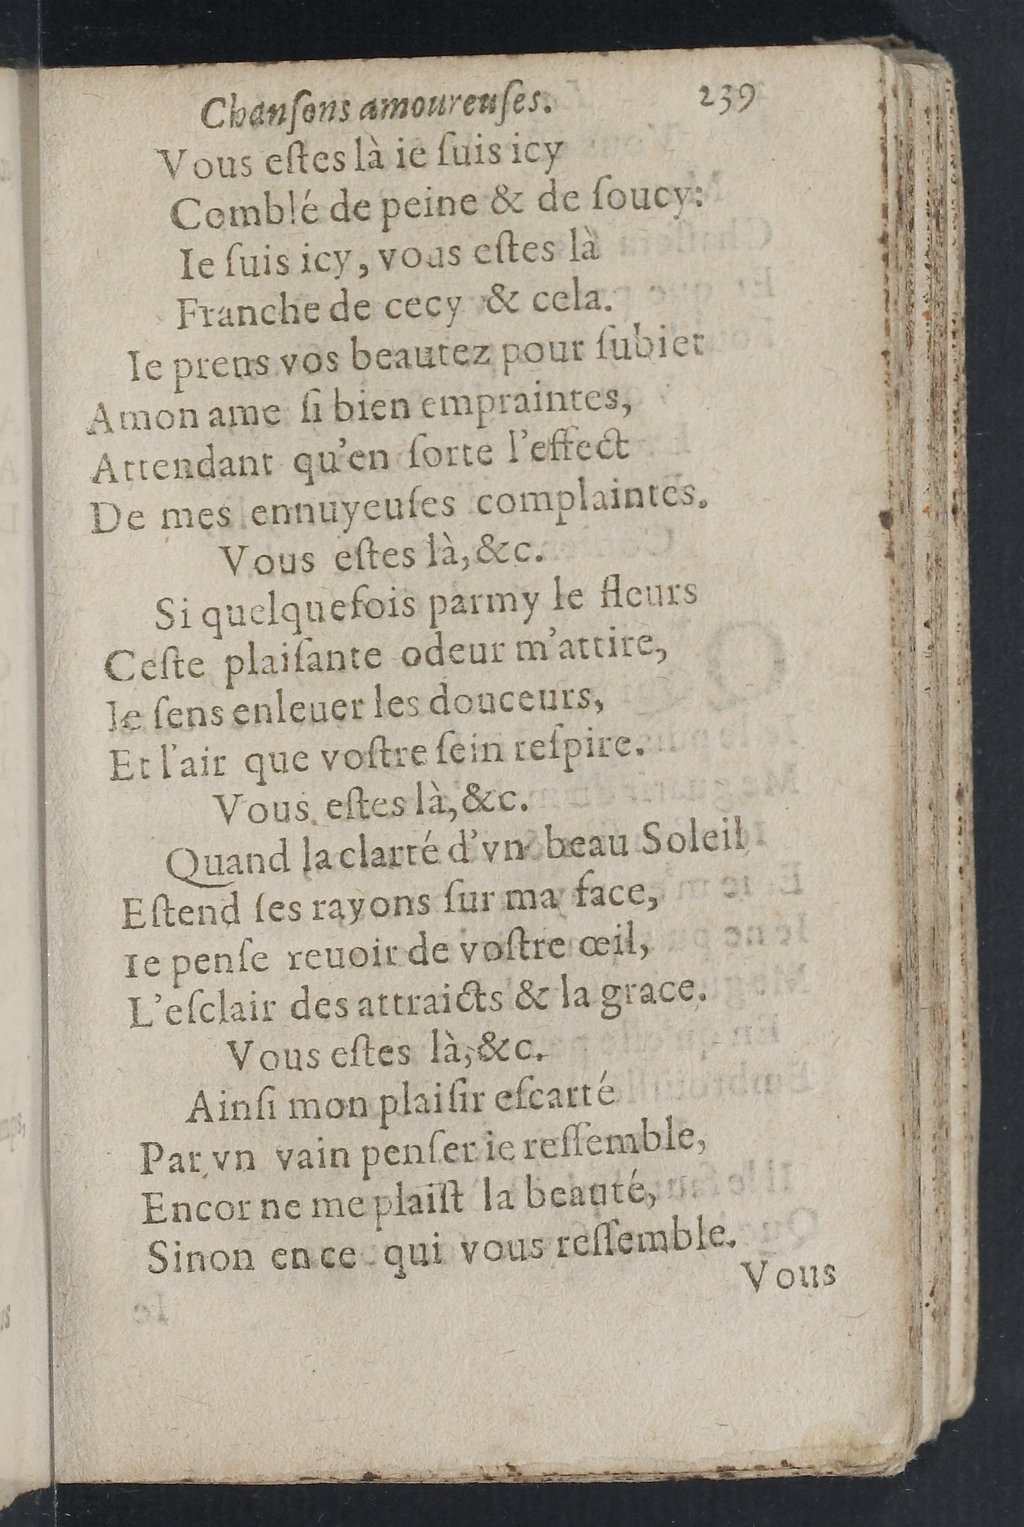 Chanſons amoureuſes. 239
Vous eſtes là ie ſuis icy
Comblé de peine & de ſoucy:
Ie ſuis icy, vous eſtes là
Franche de cecy & cela.
Ie prens vos beautez pour ſubiet
A mon ame ſi bien empraintes,
Attendant qu'en ſorte l'effect
De mes ennuyeuſes complaintes.
Vous eſtes là, &c.
Si quelquefois parmy le fleurs
Ceſte plaiſante odeur m'attire,
Ie ſens enleuer les douceurs,
Et l'air que voſtre ſein reſpire.
Vous eſtes là, &c.
Quand la clarté d'vn beau Soleil
Eſtend ſes rayons ſur ma face,
Ie penſe reuoir de voſtre œil,
L'eſclair des attraicts & la grace.
Vous eſtes là, &c.
Ainſi mon plaiſir eſcarté
Par vn vain penſer ie reſſemble,
Encor ne me plaiſt la beauté,
Sinon en ce qui vous reſſemble.
Vous